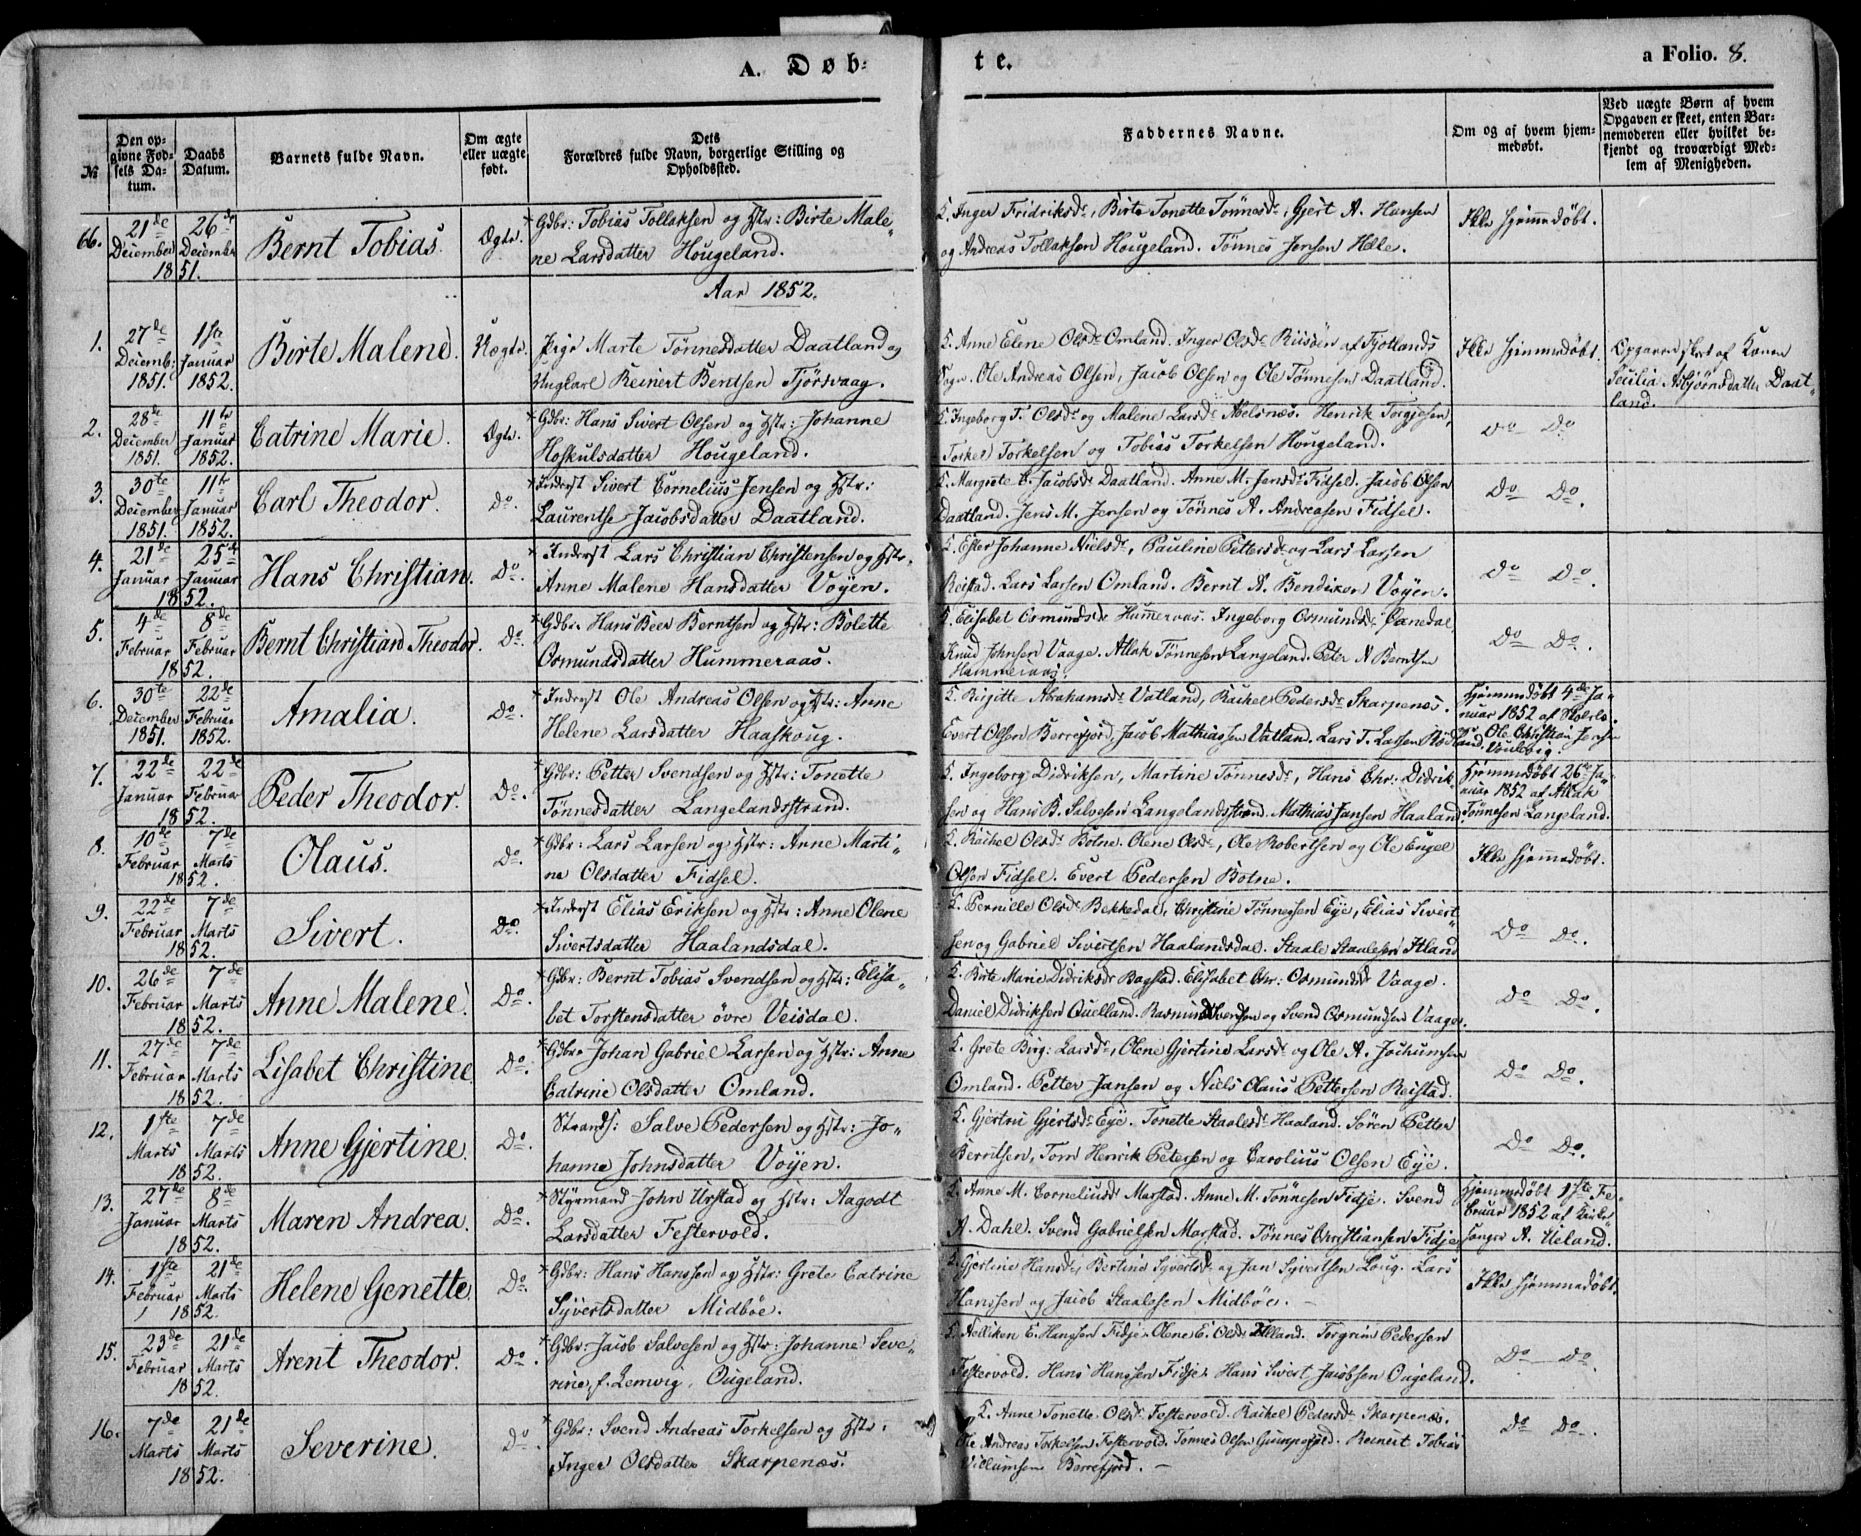 A. Døb-
te.
a Folio. 8.
№
Den opgivne Fødsels Datum.
Daabs Datum.
Barnets fulde Navn.
Om ægte eller uægte født.
Dets Forældres fulde Navn, borgerlige Stilling og Opholdssted.
Faddernes Navne.
Om og af hvem hjemmedøbt.
Ved uægte Børn af hvem Opgaven er skeet, enten Barnemoderen eller hvilket bekjendt og troværdigt Medlem af Menigheden.
66. 21de December 26de December 1851. Bernt Tobias. Ægte. Gdbr: Tobias Tollaksen og Hstr: Birte Male-
ne Larsdatter Hougeland.
F. Inger Fridriksdr, Birte Tonette Tönnesdr, Gjert A. Hansen
og Andreas Tollaksen Hougeland. Tönnes Jensen Helle.
Ikke hjemmedøbt.
Aar 1852.
1. 27de Decemb: 1851. 1ste Januar 1852. Birte Malene. Uægte. Pige Marte Tönnesdatter Daatland og
Ungkarl Reinert Bentsen Tjörsvaag.
F. Anne Elene Olsdr Omland. Inger Olsdr Riisöen af Fjotlands
Sogn. Ole Andreas Olsen, Jacob Olsen og Ole Tönnesen Daatland.
Ikke hjemmedøbt.
Opgaven skeet af Konen
Secilia Asbjörnsdatter Daat-
land.
2. 28de December 1851. 11te Januar 1852. Catrine Marie. Ægte. Gdbr: Hans Sivert Olsen og Hstr: Johanne
Hoskulsdatter Hougeland.
F. Ingeborg T. Olsdr og Malene Larsdr Abelsnæs. Henrik Torgjesen,
Torkel Torkelsen og Tobias Torkelsen Hougeland.
Do Do
3. 30te December 1851. 11te Januar 1852. Carl Theodor. Do. Inderst Sivert Cornelius Jensen og Hstr:
Laurentse Jacobsdatter Daatland.
F. Margrete C. Jacobsdr Daatland. Anne M. Jensdr Fidsel. Jacob Olsen
Daatland. Jens M. Jensen og Tönnes A. Andreasen Fidsel.
Do Do.
4. 21de Januar 25de Januar 1852. Hans Christian. Do. Inderst Lars Christian Christensen og Hstr.
Anne Malene Hansdatter Voyen.
F. Ester Johanne Nielsdr, Pauline Pettersdr og Lars Larsen
Reistad. Lars Larsen Omland. Bernt A. Bendixen Voyen.
Do Do.
5. 4de Februar 8de Februar 1852. Bernt Christian Theodor. Do. Gdbr. Hans Beer Berntsen og Hstr: Bolette
Osmundsdatter Hummeraas.
F. Elisabet Osmundsdr Humeraas. Ingeborg Osmundsdr Panedal
Knud Johnsen Vaage. Atlak Tönnesen Langeland. Peter A Berntsen
Hammeraas.
Do Do.
6. 30te December 1851. 22de Februar 1852. Amalia. Do. Inderst Ole Andreas Olsen og Hstr: Anne
Helene Larsdatter Haaskoug.
F. Birgitte Abrahamsdr Vatland, Rachel Pedersdr Skarpenæs.
Evert Olsen Berrefjord, Jacob Mathiassen Vatland. Lars T. Larsen Rödland.
Hjemmedøbt 4de Ja-
nuar 1852 af Skole-
Ole Christian Jensen
7. 22de Januar 22de Februar 1852. Peder Theodor. Do. Gdbr: Petter Svendsen og Hstr: Tonette
Tönnesdatter Langelandsstrand.
F. Ingeborg Didriksen, Martine Tönnesdr, Hans Chr: Didrik-
sen og Hans B. Salvesen Langelandsstrand. Mathias Jansen Haaland.
Hjemmedøbt 26de Ja-
nuar 1852 af Atlak
Tönnesen Langeland.
8. 10de Februar 7de Marts 1852. Olaus. Do. Gdbr: Lars Larsen og Hstr: Anne Marti-
ne Olsdatter Fidsel.
F. Rachel Olsdr Botne. Olene Olsdr, Ole Robertsen og Ole Engel
Olsen Fidsel. Evert Pedersen Botne.
Ikke hjemmedøbt.
9. 22de Februar 7de Marts 1852. Sivert. Do. Inderst Elias Eriksen og Hstr: Anne Olene
Sivertsdatter Haalandsdal.
F. Pernille Olsdr Bekkedal, Christine Tönnessen Eye, Elias Sivert-
sen og Gabriel Sivertsen Haalandsdal. Staale Staalesen Itland
Do Do.
10. 26de Februar 7de Marts 1852. Anne Malene. Do. Gdbr: Bernt Tobias Svendsen og Hstr: Elisa-
bet Torstensdatter övre Veisdal.
F. Birte Marie Didriksdr Bagstad. Elisabet Chr: Osmundsdr Vaage.
Daniel Didriksen Quelland. Rasmus Svensen og Svend Osmundsen Vaage.
Do Do.
11. 27de Februar 7de Marts 1852. Lisabet Christine. Do. Gdbr. Johan Gabriel Larsen og Hstr: Anne
Catrine Olsdatter Omland.
F. Grete Birg: Larsdr, Olene Gjertine Larsdr og Ole A. Jochumsen
Omland. Petter Jansen og Niels Olaus Pettersen Reistad.
Do Do.
12. 1ste Marts 7de Marts 1852. Anne Gjertine. Do. Strands: Salve Pedersen og Hstr: Jo-
hanne Johnsdatter Voyen.
F. Gjertru Gjertsdr Eye. Tonette Staalesdr Haaland. Sören Petter
Berntsen, Tom Henrik Petersen og Carolius Olsen Eye.
Do Do.
13. 27de Januar 8de Marts 1852. Maren Andrea. Do. Styrmand John Urstad og Hstr: Aagodt
Larsdatter Festervold.
F. Anne M. Corneliusdr Marstad. Anne M. Tönnesen Fidje. Svend
A. Dahl. Svend Gabrielsen Marstad. Tönnes Christiansen Fidje
Hjemmedøbt 1ste Fe-
bruar 1852 af Kirke-
sanger A. Ueland.
14. 1ste Februar 21de Marts 1852. Helene Genette. Do. Gdbr: Hans Hanssen og Hstr: Grete Catrine
Syvertsdatter Midböe.
F. Gjertine Hansdr, Bertine Syvertsdr og Jan Syvertsen Loug. Lars
Hanssen og Jacob Staalesen Midböe.
Ikke hjemmedøbt.
15. 23de Februar 21de Marts 1852. Arent Theodor. Do. Gdbr: Jacob Salvesen og Hstr: Johanne Seve-
rine, f. Lemvig, Ougeland.
F. Aediken E. Hanssen Fidje. Olene E. Olsdr Ulland. Torgrim Pedersen
Festervold. Hans Hanssen Fidje. Hans Sivert Jacobsen Ougeland.
Do Do.
16. 7de Marts 21de Marts 1852. Severine. Do Gdbr: Svend Andreas Torkelsen og Hstr.
Inger Olsdatter Skarpenæs.
F. Anne Tonette Olsdr Festervold. Rachel Pedersdr Skarpenæs.
Ole Andreas Torkelsen Festervold. Tönnes Olsen Reinert Tobias
Villumsen Berrefjord.
Do Do.